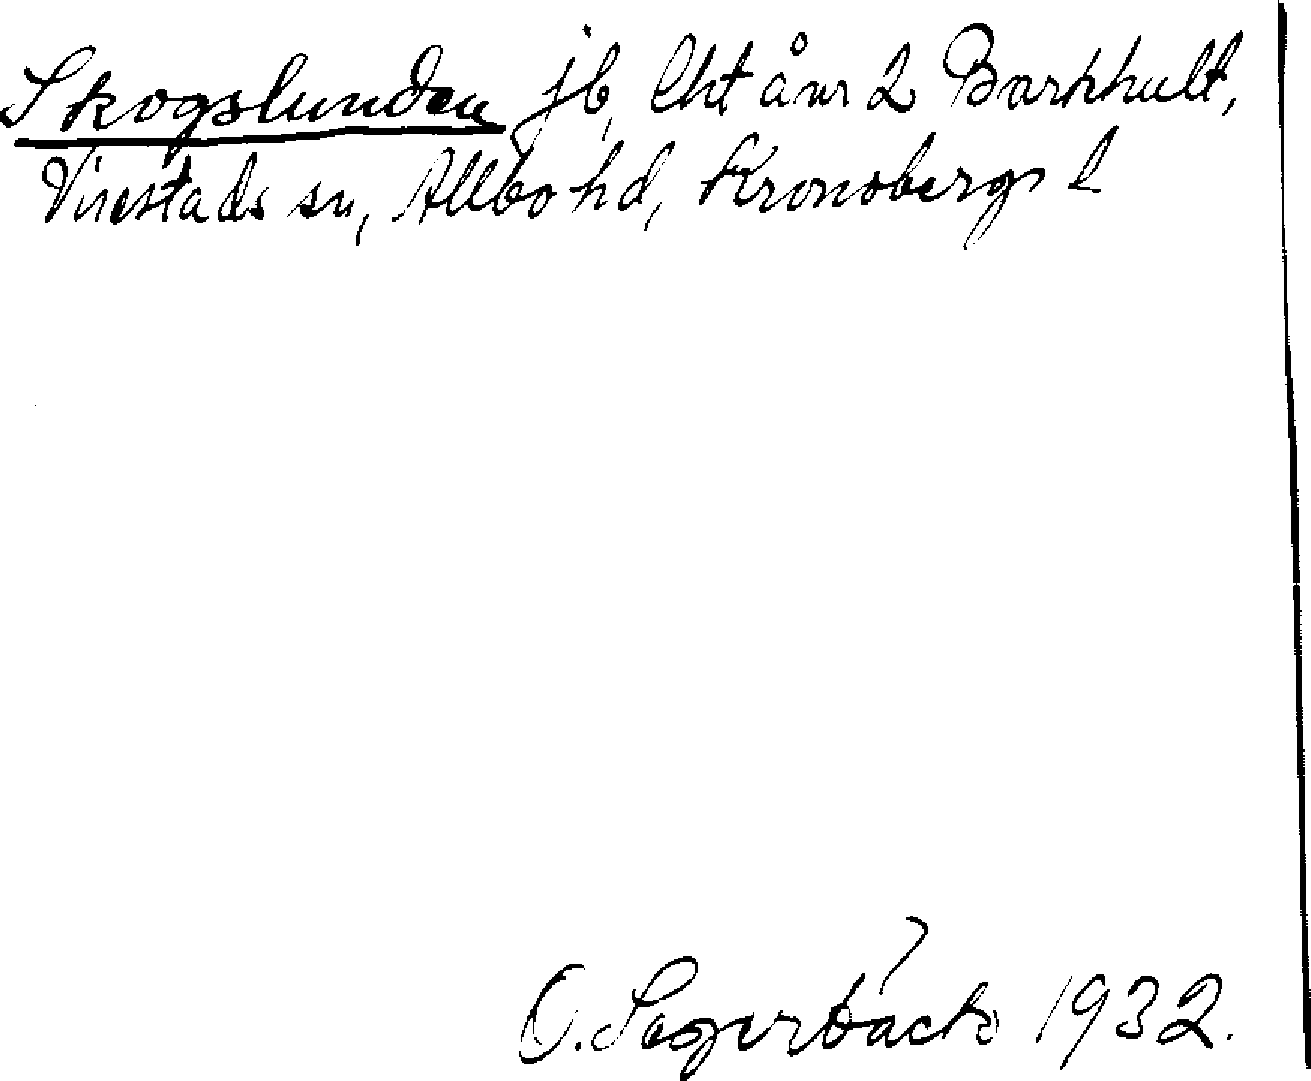 Skogslunden jb, lht å nr 2 Barkhult,
Virestads sn, Allbo hd, Kronobergs l
O. Sagerbäck 1932.